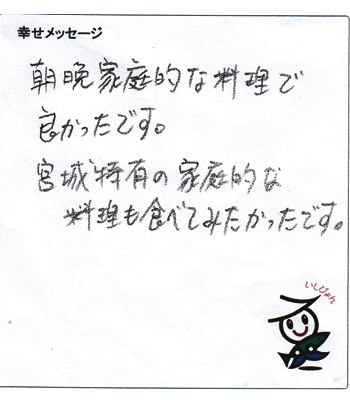 幸せメッセージ
朝晩家庭的な料理で
良かったです。
宮城特有の家庭的な
料理も食べてみたかったです。
いしぴょん